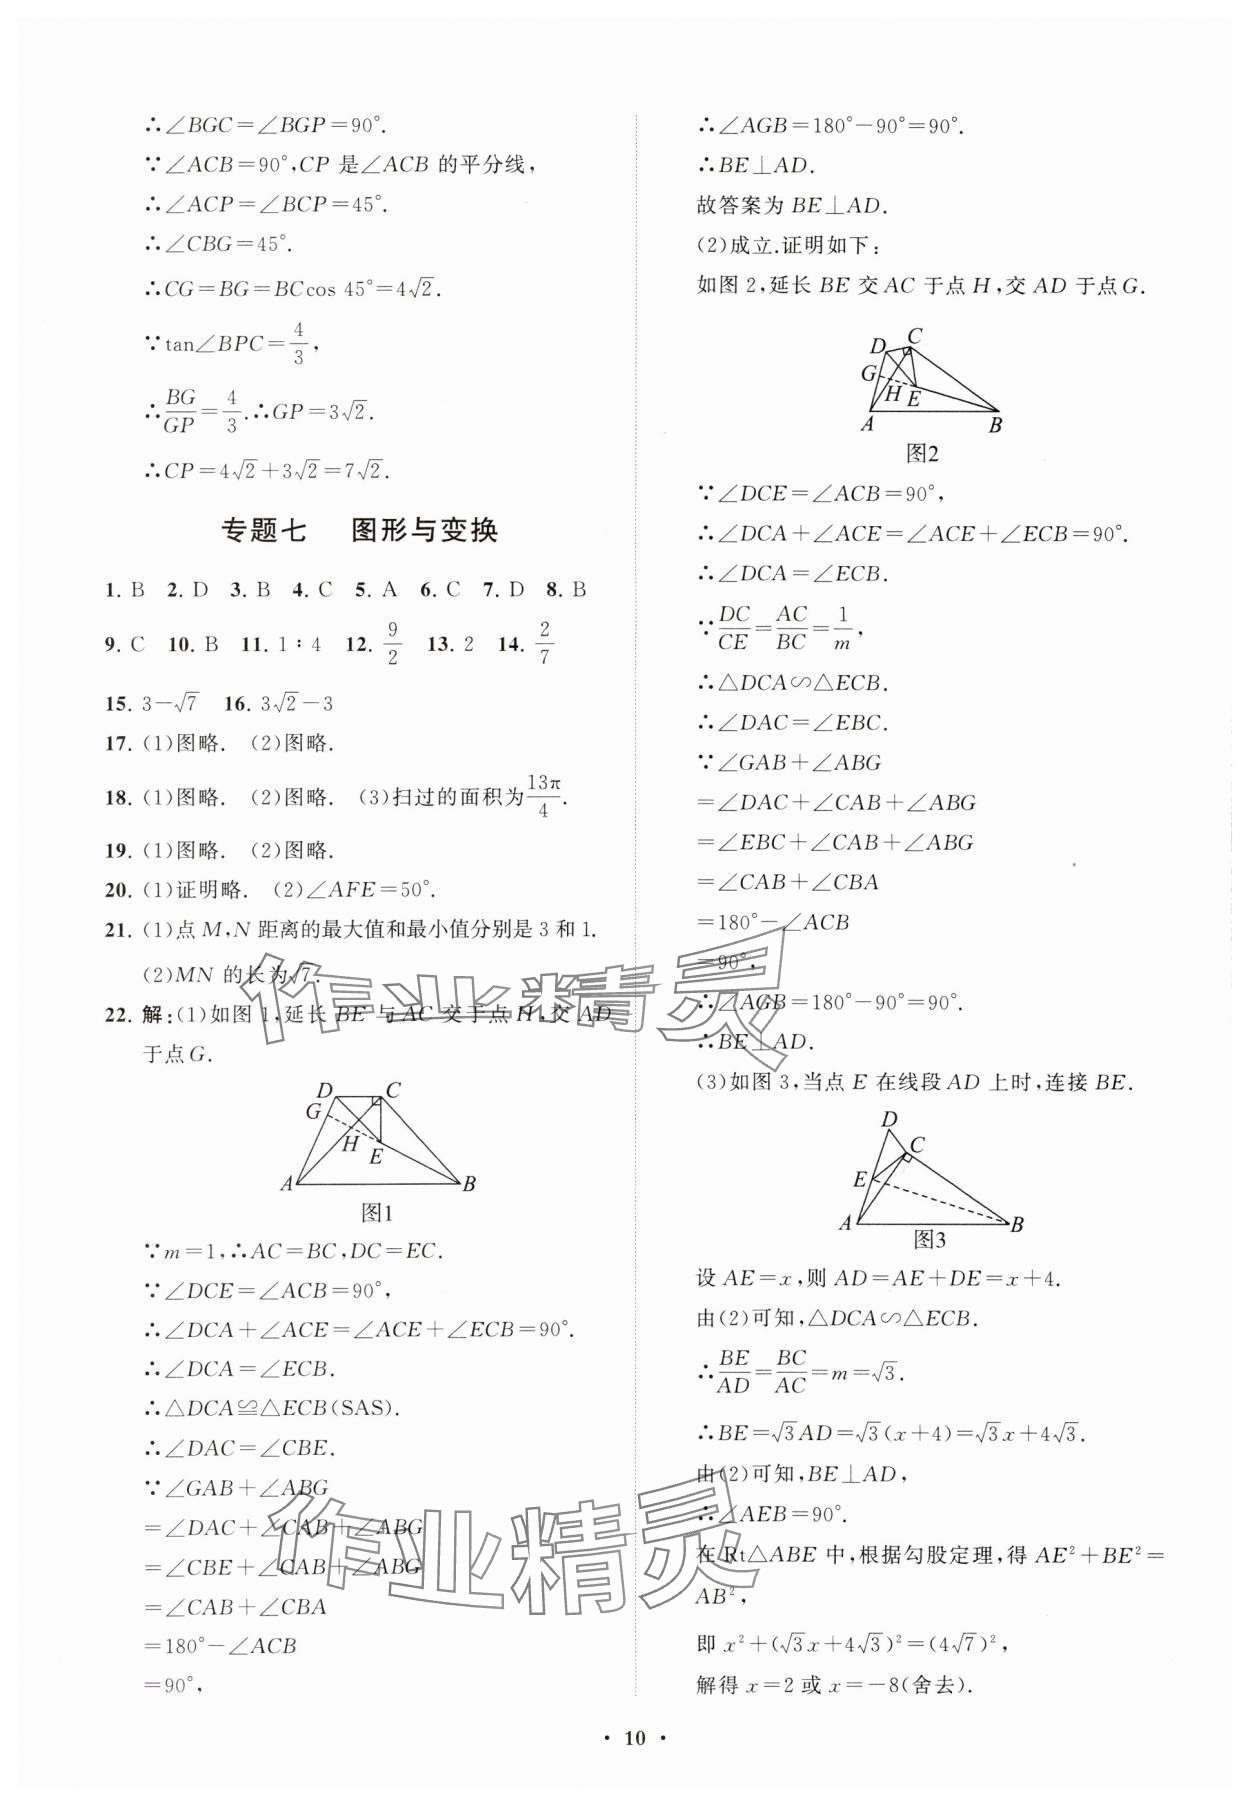 ∴∠BGC=∠BGP=90°.
∵∠ACB=90°,CP 是∠ACB 的平分线,
∴∠ACP=∠BCP=45°.
∴∠CBG=45°.
∴CG=BG=BCcos 45°=4√2.
∵tan∠BPC=4/3,
∴BG/GP=4/3.∴GP=3√2.
∴CP=4√2+3√2=7√2.
专题七 图形与变换
1. B 2. D 3. B 4. C 5. A 6. C 7. D 8. B
9. C 10. B 11. 1∶4 12. 9/2 13. 2 14. 2/7
15. 3-√7 16. 3√2-3
17. (1)图略. (2)图略.
18. (1)图略. (2)图略. (3)扫过的面积为13π/4.
19. (1)图略. (2)图略.
20. (1)证明略. (2)∠AFE=50°.
21. (1)点 M,N 距离的最大值和最小值分别是 3 和 1.
(2)MN 的长为√7.
22. 解:(1)如图 1,延长 BE 与 AC 交于点 H,交 AD
于点 G.
D C
G
H
E
A B
图1
∵m=1,∴AC=BC,DC=EC.
∵∠DCE=∠ACB=90°,
∴∠DCA+∠ACE=∠ACE+∠ECB=90°.
∴∠DCA=∠ECB.
∴△DCA≌△ECB(SAS).
∴∠DAC=∠CBE.
∵∠GAB+∠ABG
=∠DAC+∠CAB+∠ABG
=∠CBE+∠CAB+∠ABG
=∠CAB+∠CBA
=180°-∠ACB
=90°,
∴∠AGB=180°-90°=90°.
∴BE⊥AD.
故答案为 BE⊥AD.
(2)成立.证明如下:
如图 2,延长 BE 交 AC 于点 H,交 AD 于点 G.
D C
G
H E
A B
图2
∵∠DCE=∠ACB=90°,
∴∠DCA+∠ACE=∠ACE+∠ECB=90°.
∴∠DCA=∠ECB.
∵DC/CE=AC/BC=1/m,
∴△DCA∽△ECB.
∴∠DAC=∠EBC.
∵∠GAB+∠ABG
=∠DAC+∠CAB+∠ABG
=∠EBC+∠CAB+∠ABG
=∠CAB+∠CBA
=180°-∠ACB
=90°,
∴∠AGB=180°-90°=90°.
∴BE⊥AD.
(3)如图 3,当点 E 在线段 AD 上时,连接 BE.
D
C
E
A B
图3
设 AE=x,则 AD=AE+DE=x+4.
由(2)可知,△DCA∽△ECB.
∴BE/AD=BC/AC=m=√3.
∴BE=√3AD=√3(x+4)=√3x+4√3.
由(2)可知,BE⊥AD,
∴∠AEB=90°.
在 Rt△ABE 中,根据勾股定理,得 AE²+BE²=
AB²,
即 x²+(√3x+4√3)²=(4√7)²,
解得 x=2 或 x=-8(舍去).
• 10 •
作业精灵
作业精灵